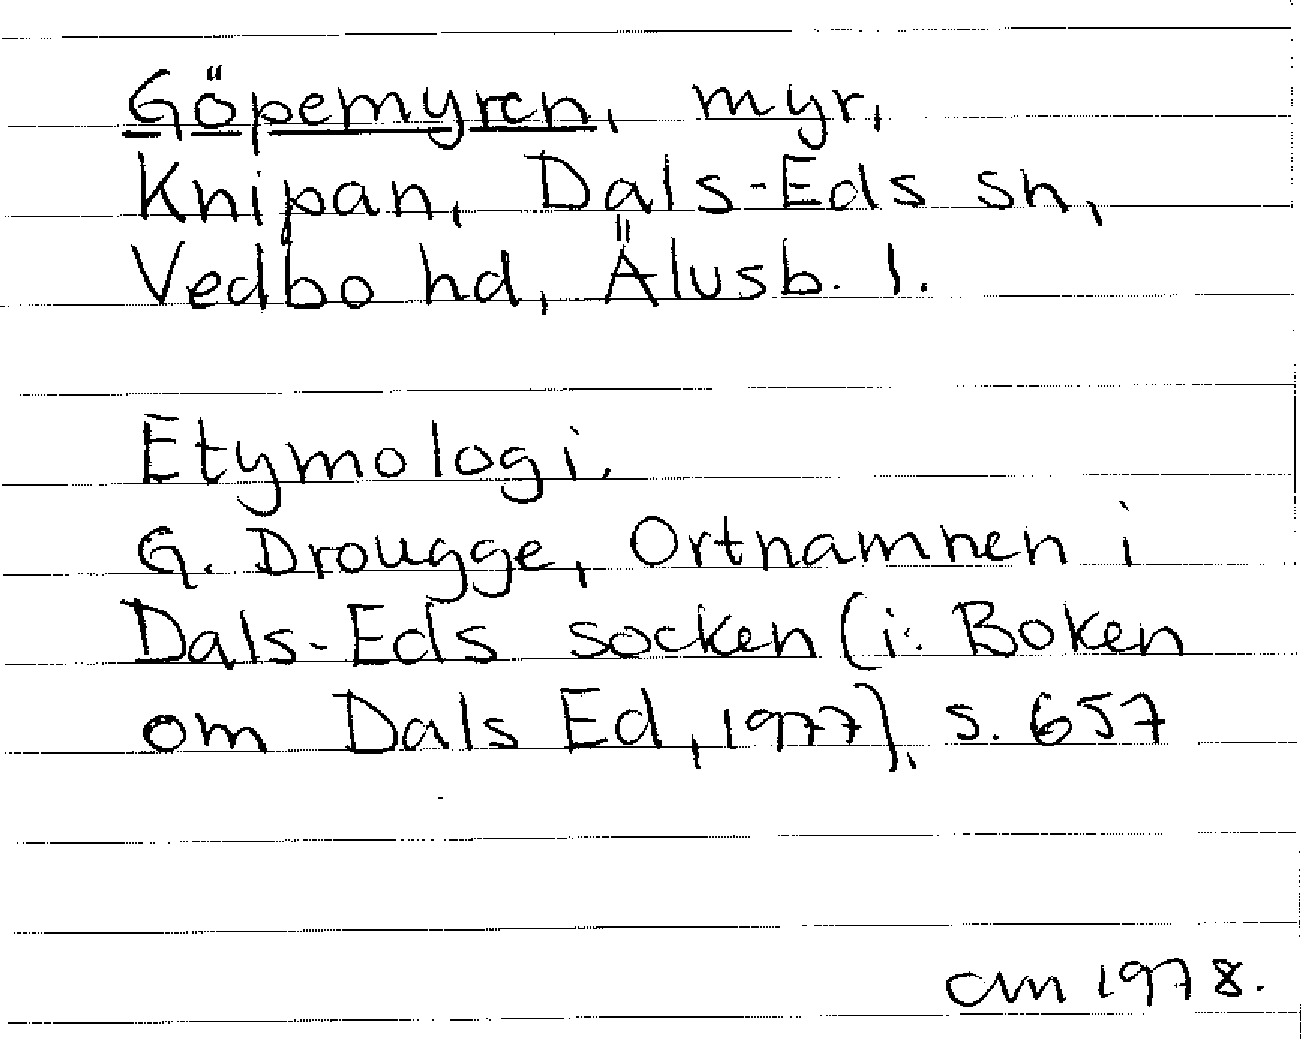 Göpemyren, myr,
Knipan, Dals-Eds sn,
Vedbo hd, Älvsb. l.
Etymologi.
G. Drougge, Ortnamnen i
Dals-Eds socken (i: Boken
om Dals Ed, 1977), s. 657
am 1978.